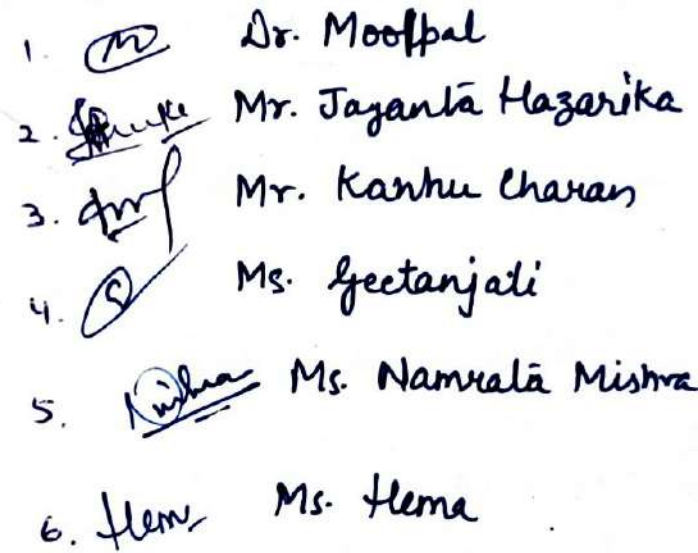 1. Dr. Moolpal
2. Mr. Jayanta Hazarika
3. Mr. Kanhu Charan
4. Ms. Geetanjali
5. Ms. Namrata Mishra
6. Hem Ms. Hema